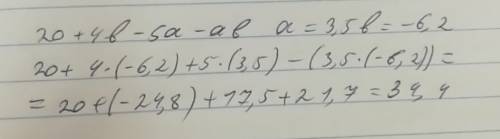 20 + 4b - 5a - ab a = 3,5 b = -6,2
20 + 4 · (-6,2) + 5 · (3,5) - (3,5 · (-6,2)) =
= 20 + (-24,8) + 17,5 + 21,7 = 34,4